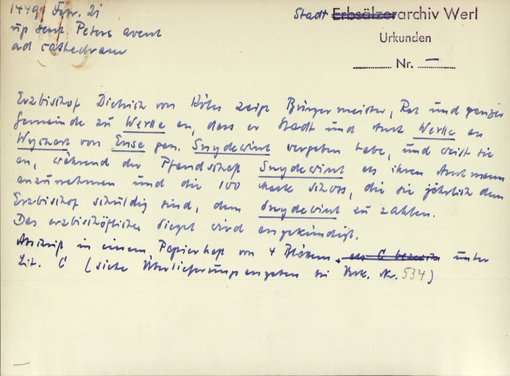 1449 Febr. 21
up sent Peters avent
ad cathedram
Stadt Erbsälzerarchiv Werl
Urkunden
Nr. –
Erzbischof Dietrich von Köln zeigt Bürgermeister, Rat und ganzer
Gemeinde zu Werle an, dass er Stadt und Amt Werle an
Wychart von Ense gen. Snydewint vergeben habe, und weist sie
an, während der Pfandschaft Snydewint als ihren Amtmann
anzunehmen und die 100 Mark Schoss, die sie jährlich dem
Erzbischof schuldig sind, dem Snydewint zu zahlen.
Das erzbischöfliche Siegel wird angekündigt.
Abschrift in einem Papierheft von 4 Blättern, unter
Lit. C (siehe Überlieferungsangaben bei Urk. Nr. 534)